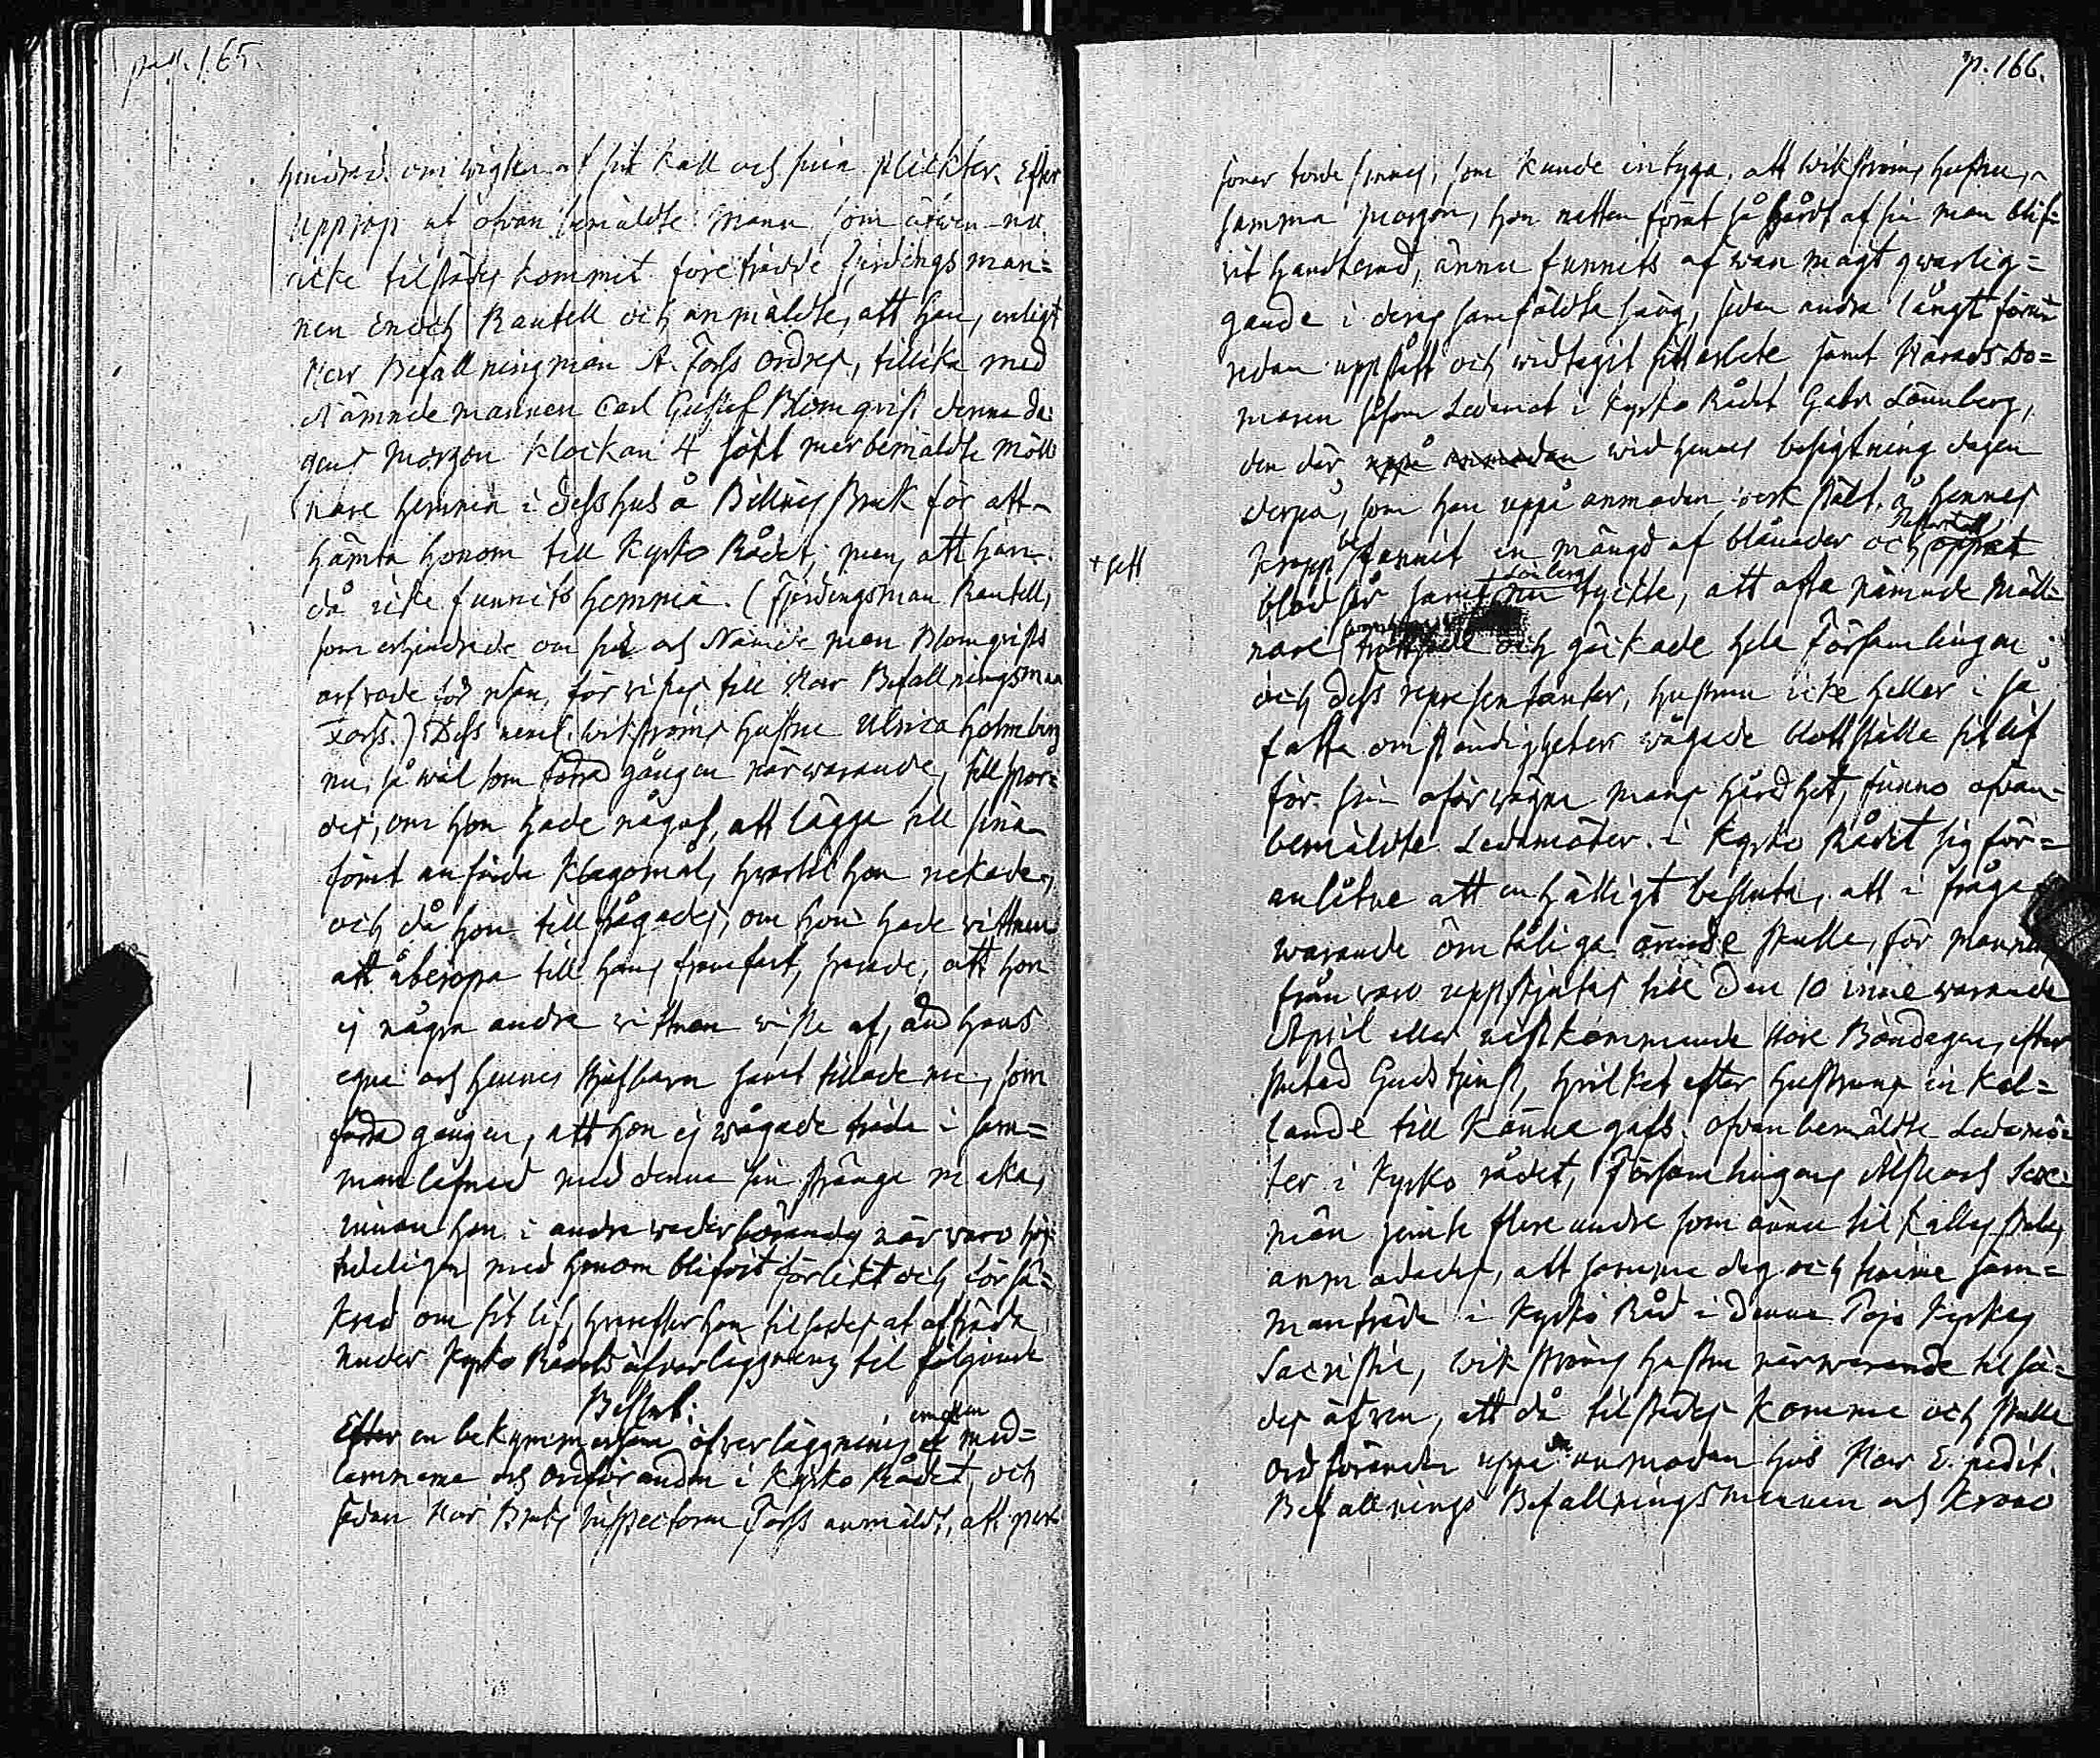 pag. 165.
hindrad om wigten af sit kall och sina plickter. Efter
upprop af ofvan bemäldte man som äfven nu
icke tilstädes kommit företrädde Fjerdingsman=
nen Enoch Rautell och anmäldte, att han, enligt
Herr Befallningsman A. Forss ordres, tillika med
Nämndemannen Carl Gustaf Blomqvist denna da=
gens morgon klockan 4 sökt merbemäldte Möll=
nare hemma i dess hus å Billnäs Bruk för att
hämta honom till Kyrko Rådet, men att han
då icke funnits hemma. (Fjerdingsman Rautell,
som erhindrade om sit och Nämnde man Blomqvists
arfvode för resan, förvistes till Herr Befallningsman
Forss.) Dess Wikströms hustru Ulrica Holmberg
nu, så wäl som förra gången närwarande, tillspor=
des, om hon hade något, att lägga till sina
förut anförda klagomål, hvartil hon nekade,
och då hon tillfrågades, om hon hade wittnen
att åberopa till hans framfart, svarade, att hon
ej några andra wittnen wiste af, än hans
egna och hennes styfbarn samt tillade nu, som
förra gången, att hon ej wågade träda i sam=
manlefnad med denna sin stränga maka,
innan hon i andra wederbörandes närvaro höj=
tideligen med honom blifvit förlikt och försä=
krad om sit lif, hvarefter hon tilsades at afträda
under Kyrko Rådets öfverläggning til följande
Beslut:
Efter en bekymmersam öfverläggning emellan med=
lemmarne och Ordföranden i Kyrko Rådet, och
sedan Herr Bruks Inspectoren Forss anmäldt, att per=
p. 166.
soner torde finnas, som kunde intyga, att Wikströms hustru,
samma morgon, hon natten förut så hårdt af sin man blif=
vit handterad, ännu funnits af wan magt qvarlig=
gande i deras samfäldta säng, sedan andra långt förut
redan uppstått och widtagit sitt arbete samt Härads Do=
maren såsom Ledamot i Kyrko Rådet Gabr. Lönnberg,
den där uppå anmodan wid hennes besigtning dagen
derpå, som han uppå anmodan werkstält, å hennes
+ sett
kropp befunnit en mängd af blånader och öppet
blod sår samt Lönnberg tyckte, att ofta nämnde Möll=
nare och gäckade hela Församlingen
och dess representanter, hustrun icke heller i så
fatta omständigheter wågade blottställa sit lif
för sin oförwägna mans hårdhet, funno ofvan=
bemäldte Ledamöter i Kyrko Rådet sig för=
anlåtne att enhälligt besluta, att i fråga
warande ömtåliga ärende skulle, för mannens
frånvaro uppskjutas till den 10 innewarande
April eller nästkommande store Böndagen, efter
slutad Gudstjenst, hvilket efter hustruns inkal=
lande till känna gafs; ofvanbemäldte Ledamö=
ter i Kyrko rådet, Församlingens Äldste och Sex=
män jemte flere andre som ännu tilkallas skulle
anmodades, att samma dag och timme sam=
manträda i Kyrko Råd i denna Pojo Kyrkas
Sacristia, Wikströms hustru närwarande tilsa=
des äfven, att då tilstädes komma och skulle
ordföranden uppå anmodan hos Herr E. o. edit.
Befallnings Befallningsmannen och Krono